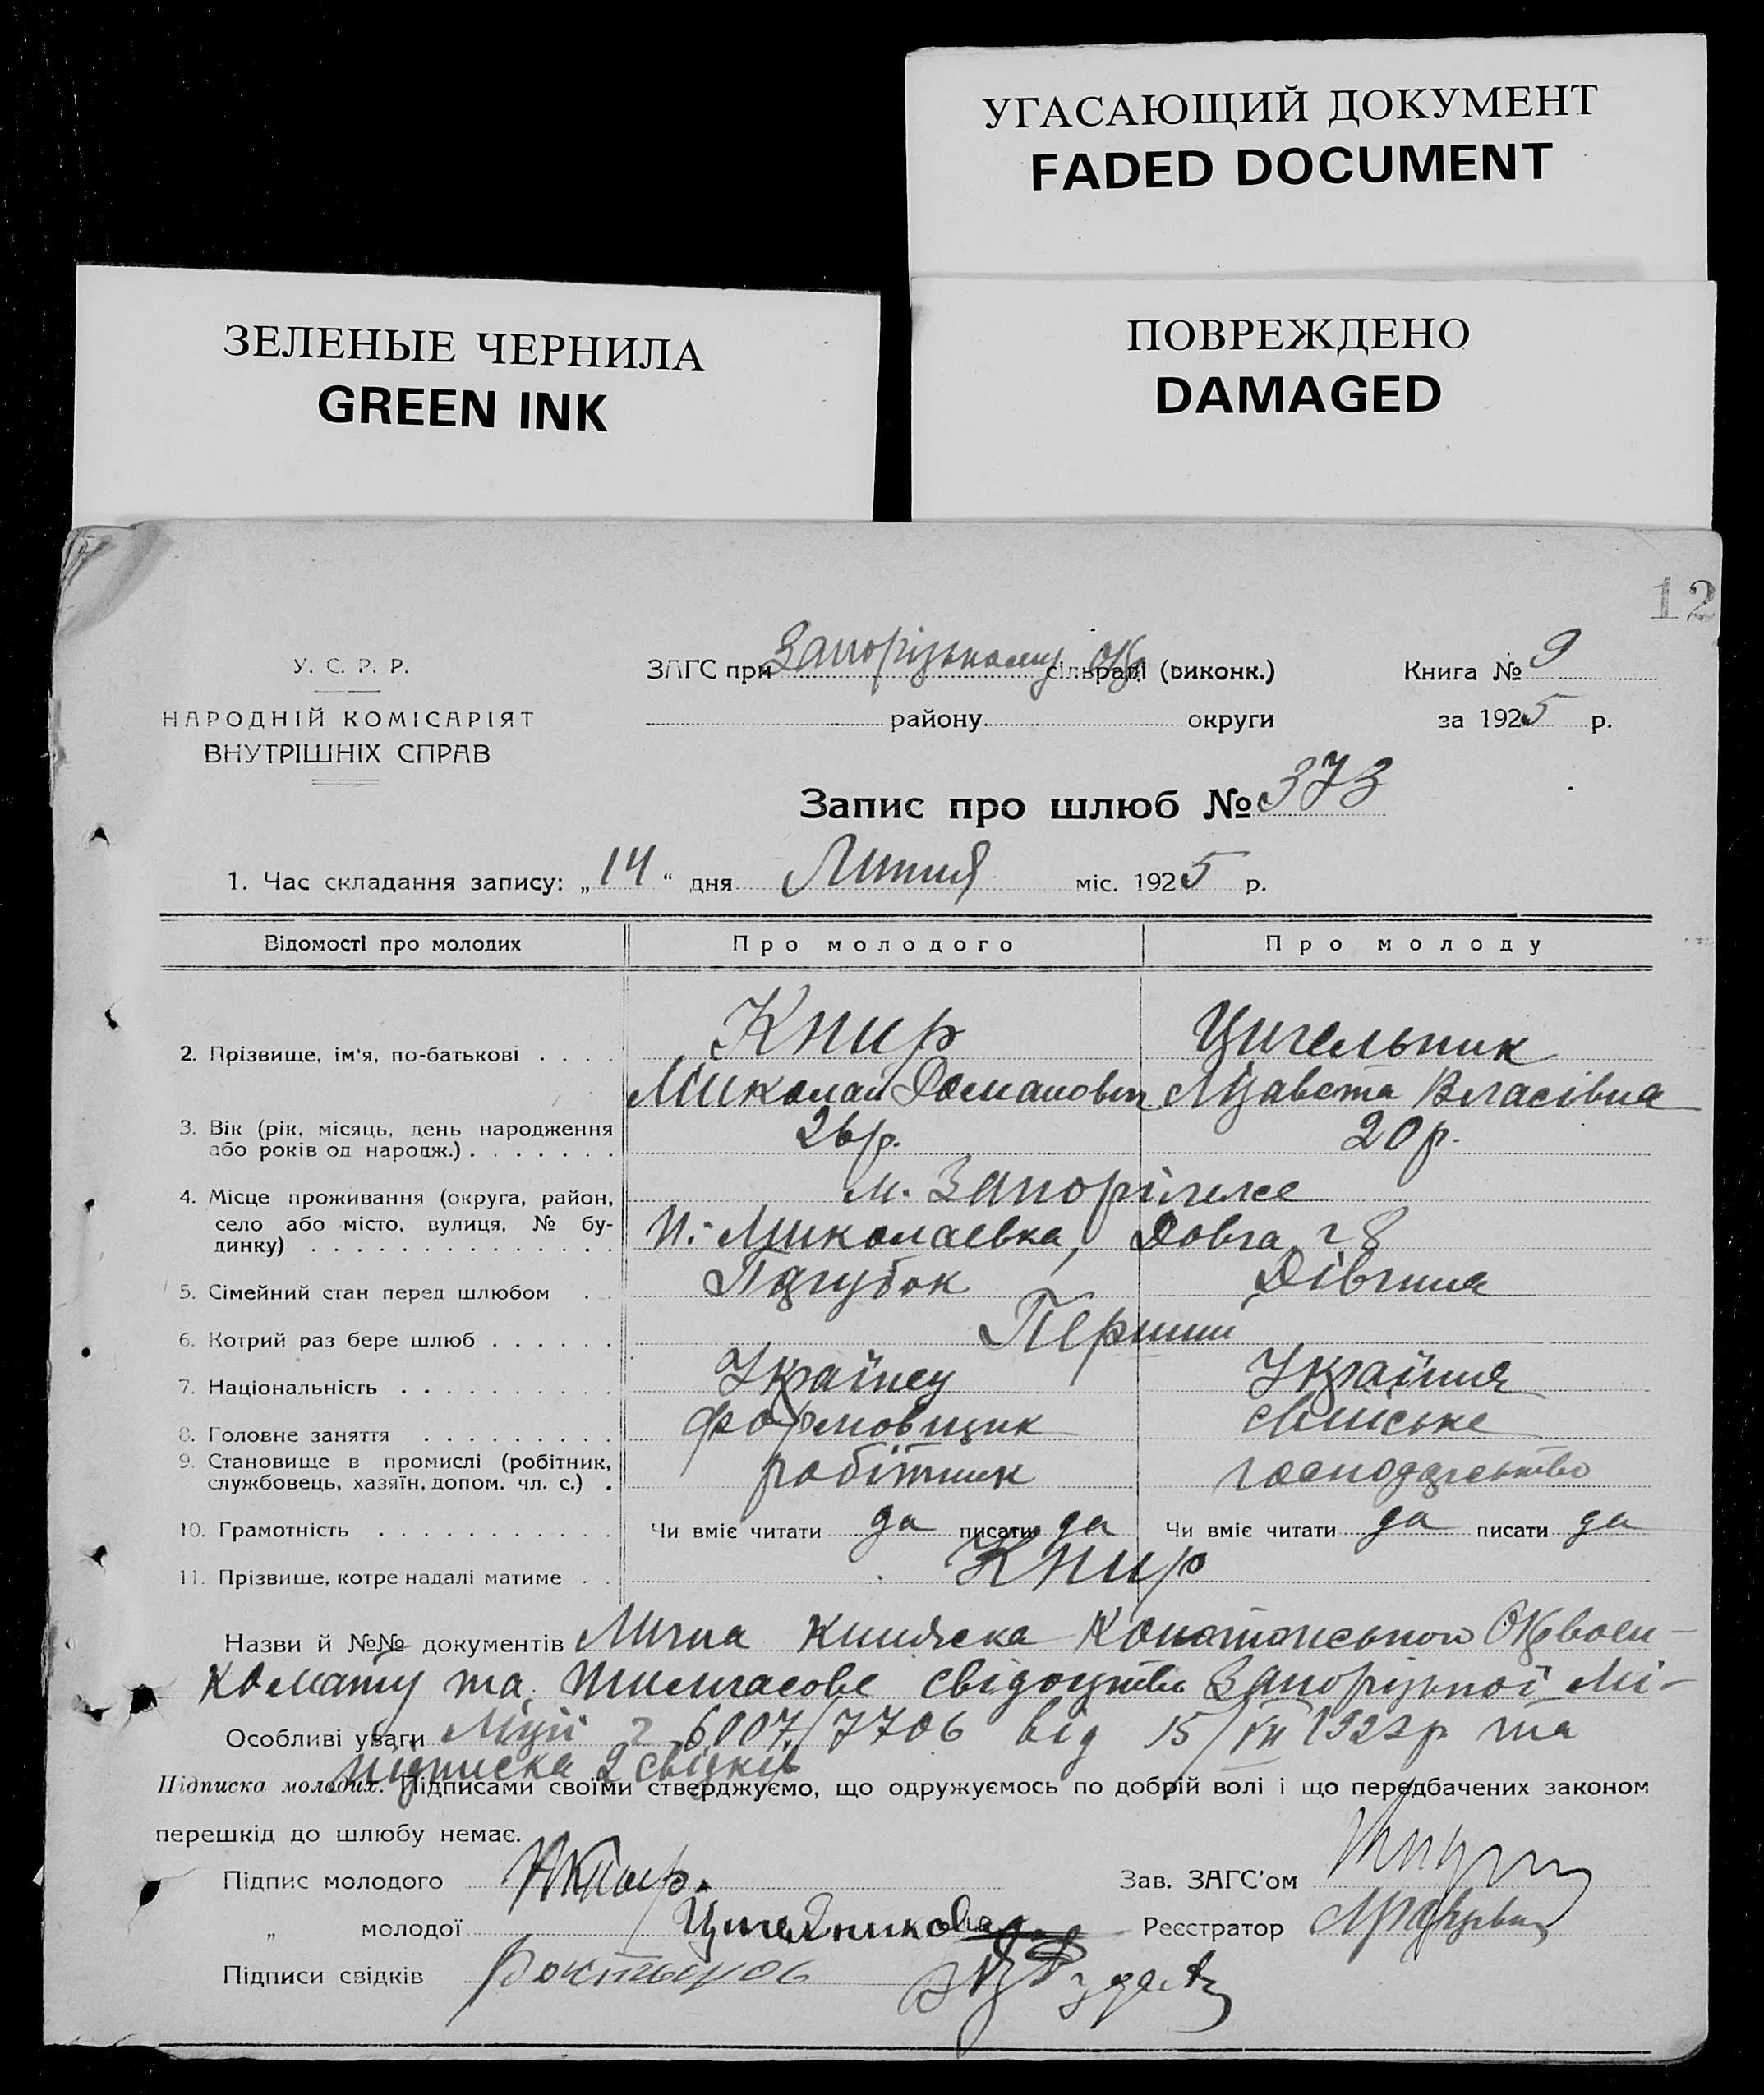 УГАСАЮЩИЙ ДОКУМЕНТ
FADED DOCUMENT
ЗЕЛЕНЫЕ ЧЕРНИЛА
GREEN INK
ПОВРЕЖДЕНО
DAMAGED
12
У. С. Р. Р.
НАРОДНІЙ КОМІСАРІЯТ
ВНУТРІШНІХ СПРАВ
ЗАГС при Запорізькому сільраді (виконк.)
району округи
Книга № 9
за 1925 р.
Запис про шлюб № 373
1. Час складання запису: „14“ дня Липня міс. 1925 р.
Відомості про молодих Про молодого Про молоду
2. Прізвище, ім'я, по-батькові . . . . Книр Цигельник
Миколай Романович Лізавета Власівна
3. Вік (рік, місяць, день народження
або років од народж.) . . . . . . . 26 р. 20 р.
4. Місце проживання (округа, район,
село або місто, вулиця, № бу-
динку) . . . . . . . . . . . . . .
м. Запоріжже
Миколаевка, Довга ч 8
5. Сімейний стан перед шлюбом . . Парубок Дівчина
6. Котрий раз бере шлюб . . . . . . Перший
7. Національність . . . . . . . . . . Українец Українка
8. Головне заняття . . . . . . . . . формовщик
9. Становище в промислі (робітник,
службовець, хазяїн, допом. чл. с.) . робітник господарство
10. Грамотність . . . . . . . . . . . Чи вміє читати да писати да Чи вміє читати да писати да
11. Прізвище, котре надалі матиме . . Книр
Назви й №№ документів Лична книжска Конотопського Окрвоен-
комату та тимчасове свідоцтво Запорізької Мі-
Особливі уваги ліції ч 6007/7706 від 15/VII 1922 р та
підписка 2 свідків
Підписка молодих. Підписами своїми стверджуємо, що одружуємось по добрій волі і що передбачених законом
перешкід до шлюбу немає.
Підпис молодого НКныр. Зав. ЗАГС'ом
„ молодої Реєстратор
Підписи свідків